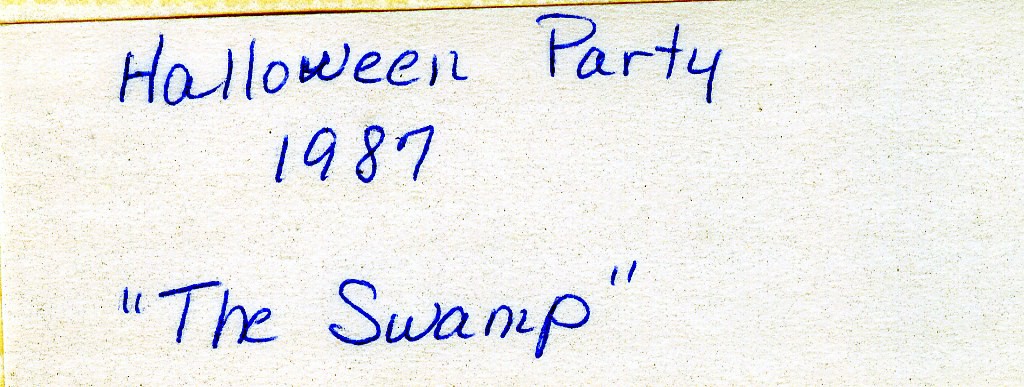 Halloween Party
1987
"The Swamp"